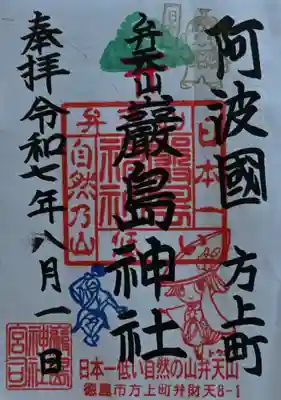 阿波國
方上町
弁天山
巖島神社
奉拝
令和七年八月一日
日本一
低い
弁
自然乃山
日本一低い自然の山弁天山
徳島市方上町弁財天8-1
宮司